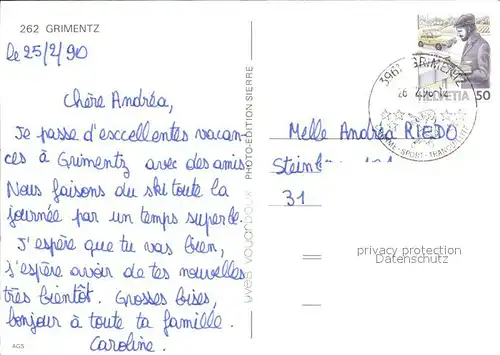 262 GRIMENTZ
le 25/2/90
Chère Andréa,
Je passe d'esccellentes vacan-
ces à Grimentz avec des amis.
Nous faisons du ski toute la
journée par un temps superbe.
J'espère que tu vas bien,
j'espère avoir de tes nouvelles
très bientôt. Grosses bises,
bonjour à toute ta famille.
Caroline.
AGS
PHOTO-EDITION SIERRE
yves vouardoux
HELVETIA 50
GRIMENTZ
SPORT
Melle Andréa RIEDO
31
privacy protection
Datenschutz